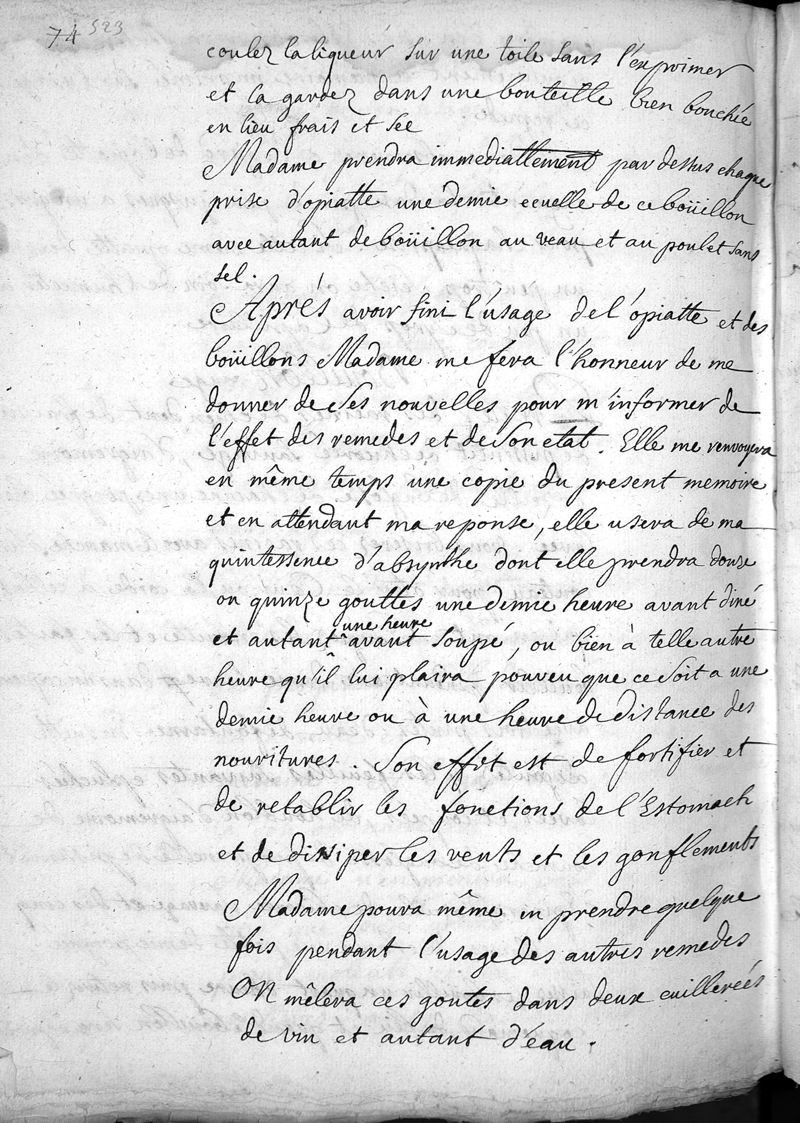 74 523
coulez la liqueur sur une toile sans l'exprimer
et la gardez dans une bouteille bien bouchée
en lieu frais et sec
Madame prendra immediattement par dessus chaque
prise d'opiatte une demie ecuelle de ce boüillon
avec autant de boüillon au veau et au poulet sans
sel.
Aprés avoir fini l'usage de l'opiatte et des
boüillons Madame me fera l'honneur de me
donner de ses nouvelles pour m'informer de
l'effet des remedes et de son etat. Elle me renvoyera
en même temps une copie du present memoire
et en attendant ma reponse, elle usera de ma
quintessence d'absynthe dont elle prendra douze
ou quinze gouttes une demie heure avant diné
une heure
et autant avant soupé, ou bien à telle autre
heure qu'il lui plaira pouveu que ce soit a une
demie heure ou à une heure de distance des
nouritures. Son effet est de fortifier et
de retablir les fonctions de l'Estomach
et de dissiper les vents et les gonflements
Madame poura même en prendre quelque
fois pendant l'usage des autres remedes
On mêlera ces goutes dans deux cuillereés
de vin et autant d'eau.